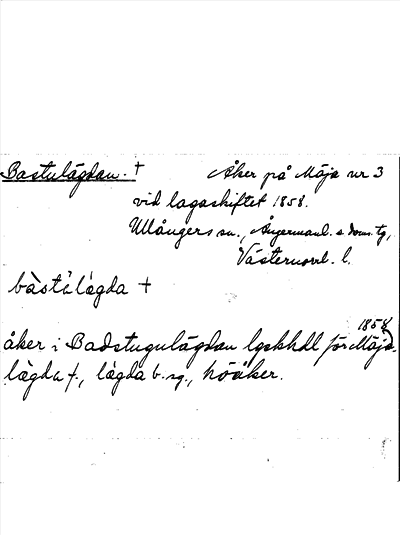 Bastulägdan. † Åker på Mäja nr 3
vid lagaskiftet 1858.
Ullångers sn., Ångermanl. s. doms. tg,
Västernorrl. l.
bàstúlägda †
1858
åker i Badstugulägdan lgskhdl för Mäja.
lägda f., lägda b. sg., höåker.